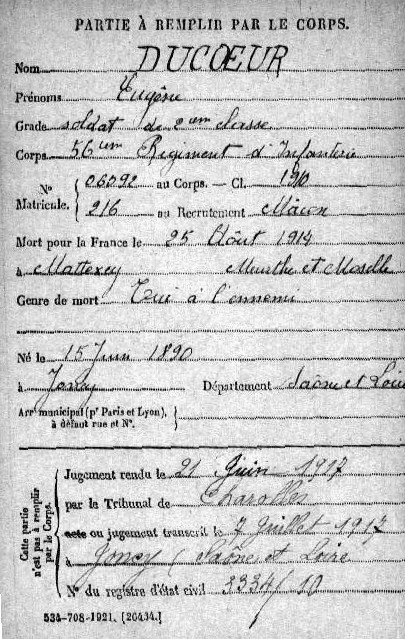 PARTIE À REMPLIR PAR LE CORPS.
Nom DUCŒUR
Prénoms Eugène
Grade soldat de 2em classe
Corps 56em Régiment d'Infanterie
No Matricule. 06092 au Corps. — Cl. 1910
216 au Recrutement Mâcon
Mort pour la France le 25 Août 1914
à Mattexey Meurthe et Moselle
Genre de mort Tué à l'ennemi
Né le 15 Juin 1890
à Joncy Département Saône et Loire
Arrt municipal (pr Paris et Lyon), à défaut rue et No.
Cette partie n'est pas à remplir par le Corps.
Jugement rendu le 21 Juin 1917
par le Tribunal de Charolles
acte ou jugement transcrit le 7 Juillet 1917
à Joncy, Saône et Loire
No du registre d'état civil 3334/10
534-708-1921. [26434.]